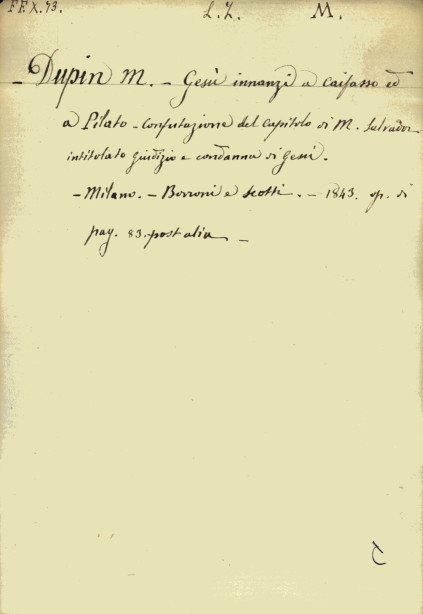 FF. X. 73. L. Z. M.
- Dupin M. - Gesù innanzi a Caifasso ed
a Pilato - Confutazione del Capitolo di M. Salvador
intitolato giudizio e condanna di Gesù.
- Milano. - Borroni e Scotti. - 1843. op. di
pag. 83. post alia -